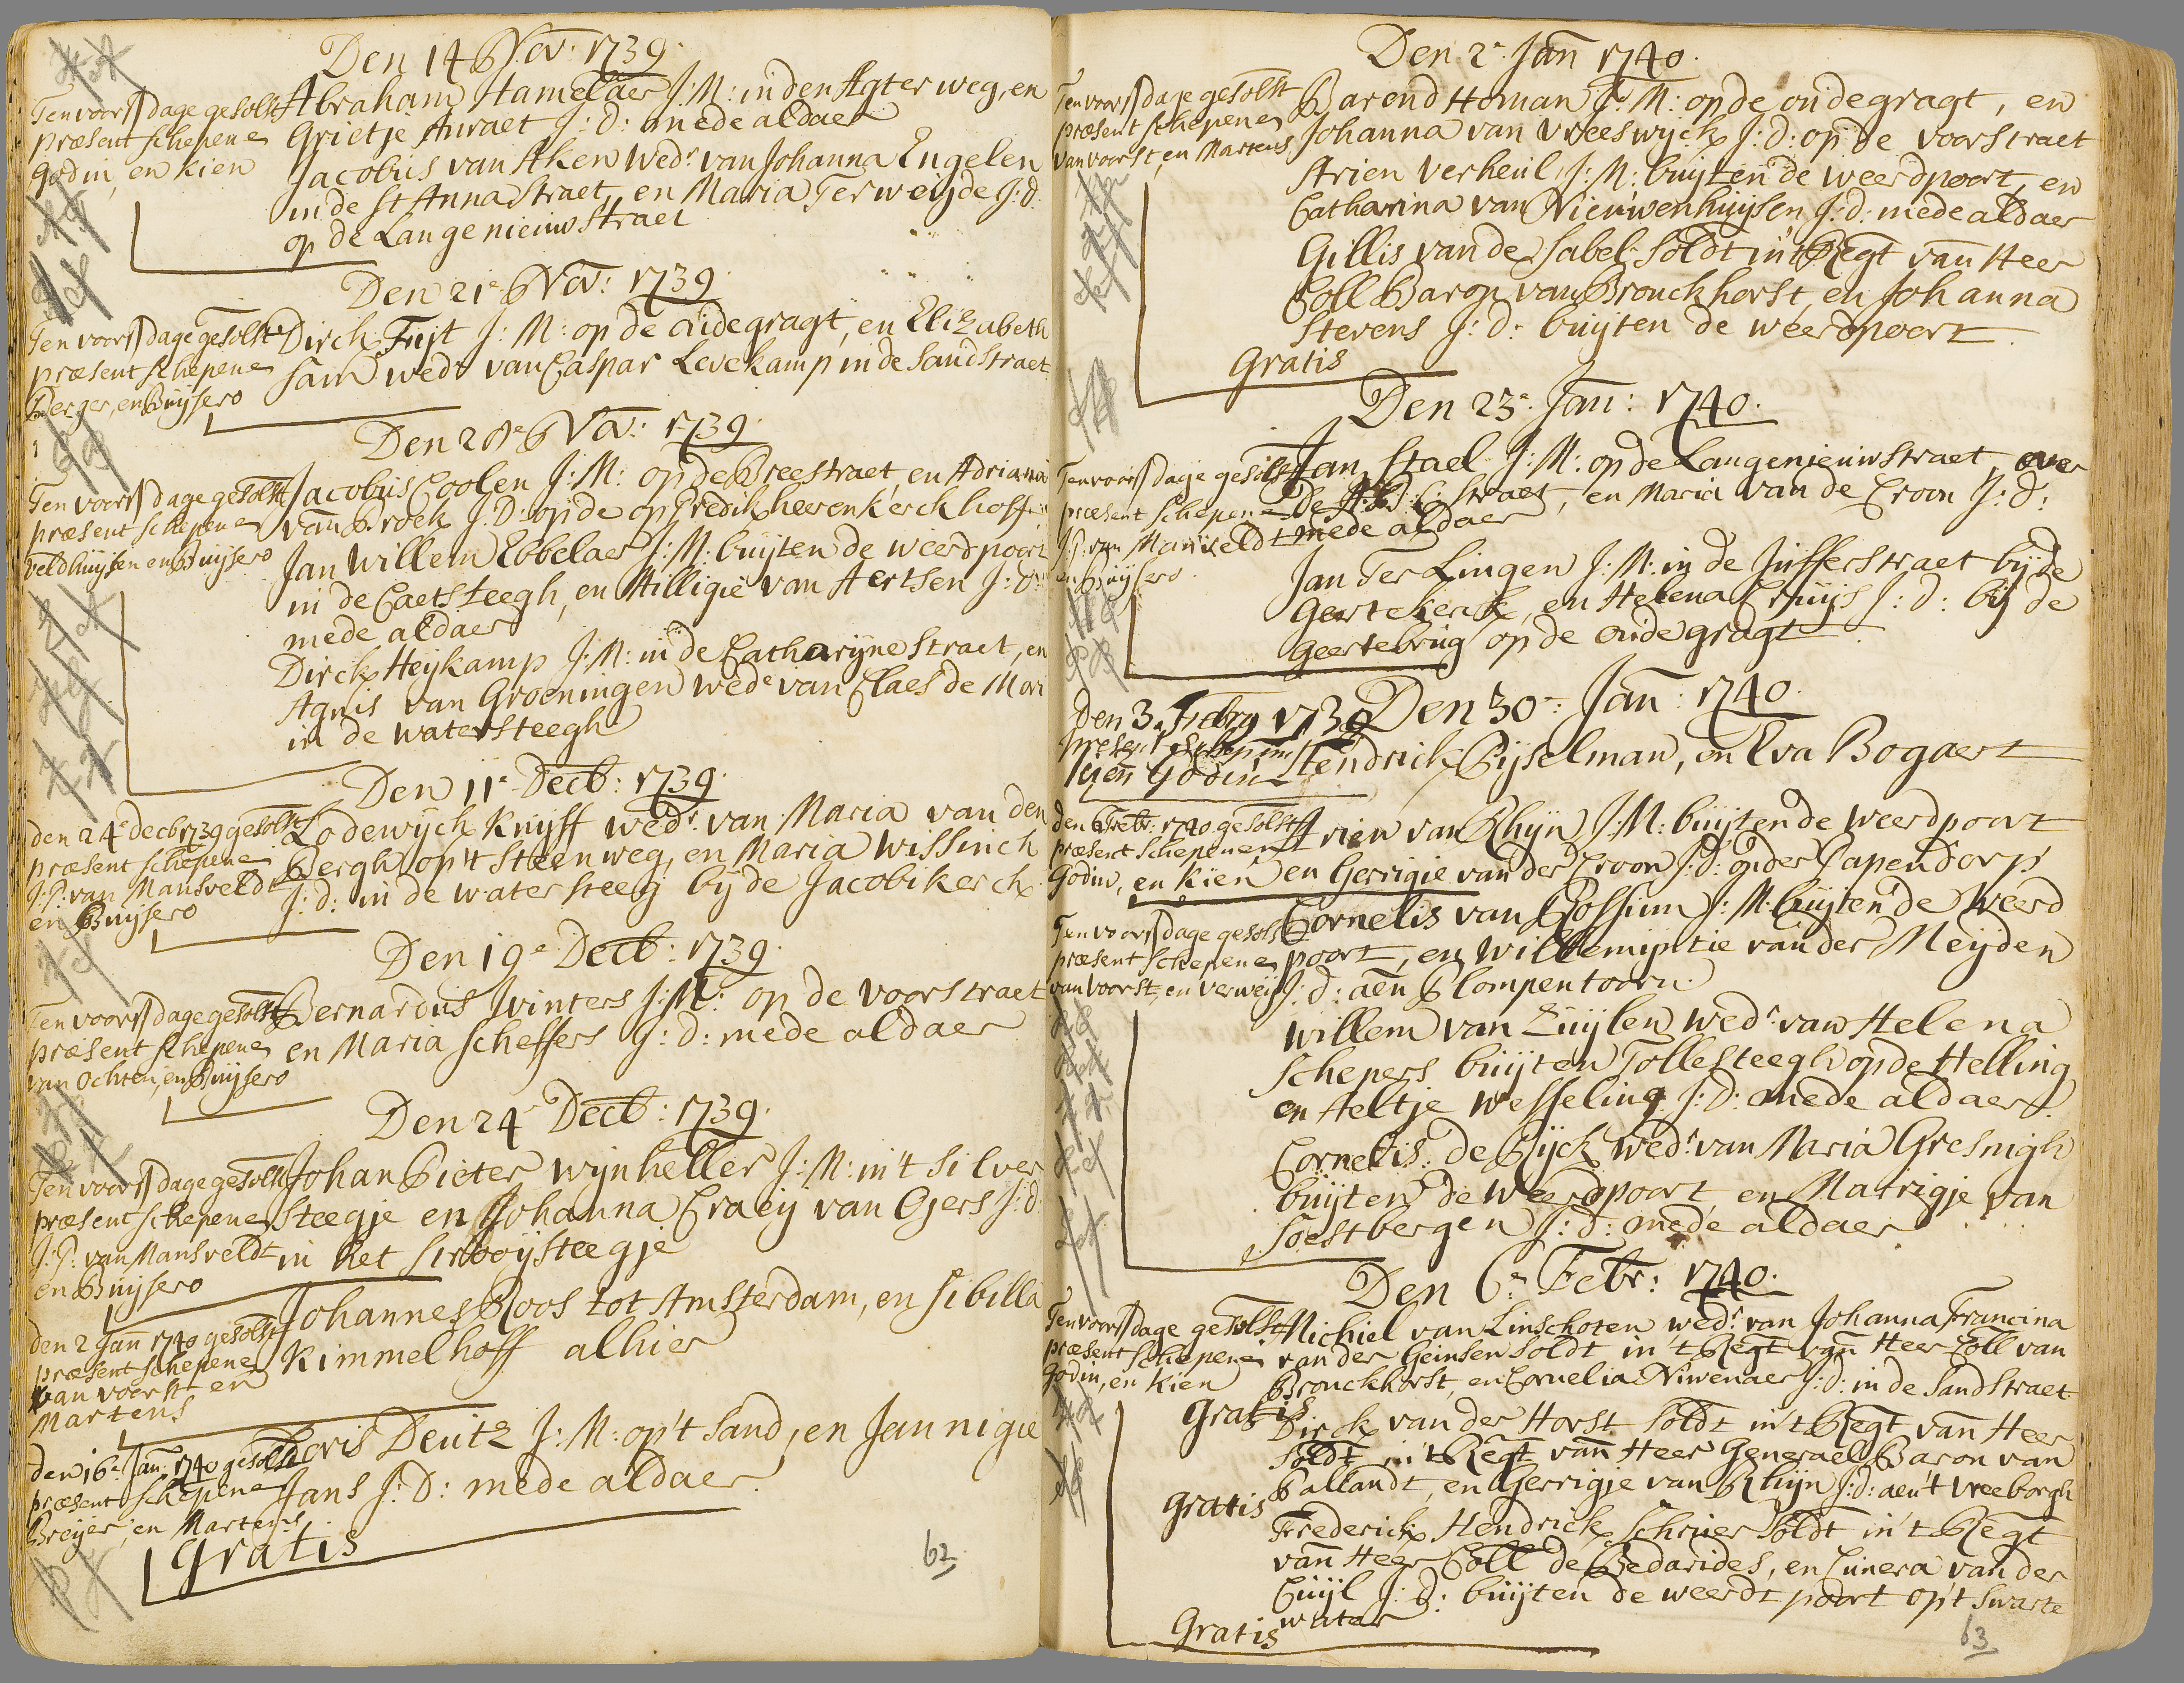 Den 14 Nov: 1739.
Ten voors dage gesolt
præsent schepene
Godin, en Kien
Abraham Hamelaer J:M: in den Agter weg, en
Grietje Auraet J:d: mede aldaer
Jacobus van Aken wedr. van Johanna Engelen
in de St Anna Straet, en Maria Ter weijde J:d:
op de Lange nieuw Straet
Den 21e Nov: 1739.
Ten voors dage gesolt
præsent schepene
Berger, en Buijsero
Dirck Fuijt J:M: op de oudegragt, en Elizabeth
Sam wede van Caspar Levekamp in de Sandstraet
Den 28e Nov: 1739.
Ten voors dage gesolt
præsent schepene
Veldhuijsen en Buijsero
Jacobus Coolen J:M: op de Breestraet, en Adriana
van Broek J:D: op de op Predikheeren kerckhoff
Jan Willem Ebbelaer J:M: buijten de weerdpoort
in de Caets steegh, en Hilligie van Aertsen J:d:
mede aldaer
Dirck Heijkamp J:M: in de Catharijne straet, en
Agnis van Groeningen wede van Claes de Mori
in de watersteegh
Den 11e Decb: 1739.
den 24e decb 1739 gesolt
præsent schepene
J:P: van Mansveldt
en Buijsero
Lodewijck Knijff wedr. van Maria van den
Bergh op't steenweg, en Maria Wissinch
J:d: in de watersteeg bij de Jacobikerck
Den 19e Decb: 1739.
Ten voors dage gesolt
præsent schepene
van Ochten, en Buijsero
Bernardus Winters J:M: op de voorstraet
en Maria Scheffers J:d: mede aldaer
Den 24e Decb: 1739.
Ten voors dage gesolt
præsent schepene
J:P: van Mansveldt
en Buijsero
Johan Pieter Wijnheller J:M: in't Silver
steegje en Johanna Craeij van Ojers J:d:
in het Strooijsteegje
den 2 Jan 1740 gesolt
præsent schepene
van voorst en
Martens
Johannes Roos tot Amsterdam, en Sibilla
Kimmelhoff alhier
den 16e Jan. 1740 gesolt
præsent schepene
Breijer, en Martens
Joris Deutz J:M: op't Sand, en Jannigie
Jans J:D: mede aldaer.
Gratis
62
Den 2e Jan 1740.
Ten voors dage gesolt
præsent schepene
van voorst, en Martens
Barend Homan J:M: op de oudegragt, en
Johanna van Vreeswyck J:d: op de voorstraet
Arien Verheul J:M: buijten de weerdpoort, en
Catharina van Nieuwenhuijsen J:d: mede aldaer
Gillis van de Sabel Soldt in't Regt van Heer
Coll Baron van Bronckhorst, en Johanna
Stevens J:d: buijten de weerdpoort.
Gratis
Den 23e Jan: 1740.
Ten voors dage gesolt
præsent schepene
J:P: van Mansveldt
en Buijsero.
Jan Stael J:M: op de Langenieuwstraet, over
de A:B:C: straet, en Maria van de Croon J:d:
mede aldaer
Jan Ter Lingen J:M: in de Jufferstraet bij de
Geertekerk, en Helena Cruijs J:d: bij de
Geertebrug op de oudegragt
Den 30e Jan: 1740.
Den 3. Febry 1739
present schepene
Kien Godin
Hendrick Bijselman, en Eva Bogaert
den 6 Febr: 1740 gesolt
præsent schepene
Godin, en Kien
Arien van Rhijn J:M: buijten de weerdpoort
en Gerrigie van der Croon J:d: onder Papendorp
Ten voors dage gesolt
præsent schepene
van voorst, en Verweij
Cornelis van Rossum J:M: buijten de Weerd
poort, en Willemijntie van der Meijden
J:d: aen Plompentoorn.
Willem van Zuijlen wedr. van Helena
Schepers buijten Tollesteegh op de Helling
en Aeltje Wesseling J:D: mede aldaer
Cornelis de Rijck wedr. van Maria Gresnigh
buijten de Weerdpoort, en Marrigje van
Soestbergen J:d: mede aldaer
Den 6e Febr: 1740.
Ten voors dage gesolt
præsent schepene
Godin, en Kien
Michiel van Linschoten wedr. van Johanna Francina
van der Geinsen Soldt in't Regt van Heer Coll van
Bronckhorst, en Cornelia Niwenaer J:d: in de Sandstraet
Gratis
Dirck van der Horst Soldt in't Regt van Heer
Soldt in't Regt van Heer Generael Baron van
Pallandt, en Gerrigje van Rhijn J:d: aen't Vreeborgh
Gratis
Frederick Hendrick Schrier Soldt in't Regt
van Heer Coll de Bedarides, en Cunera van der
Cuijl J:d: buijten de weerdt poort op't Swarte
water
Gratis
63